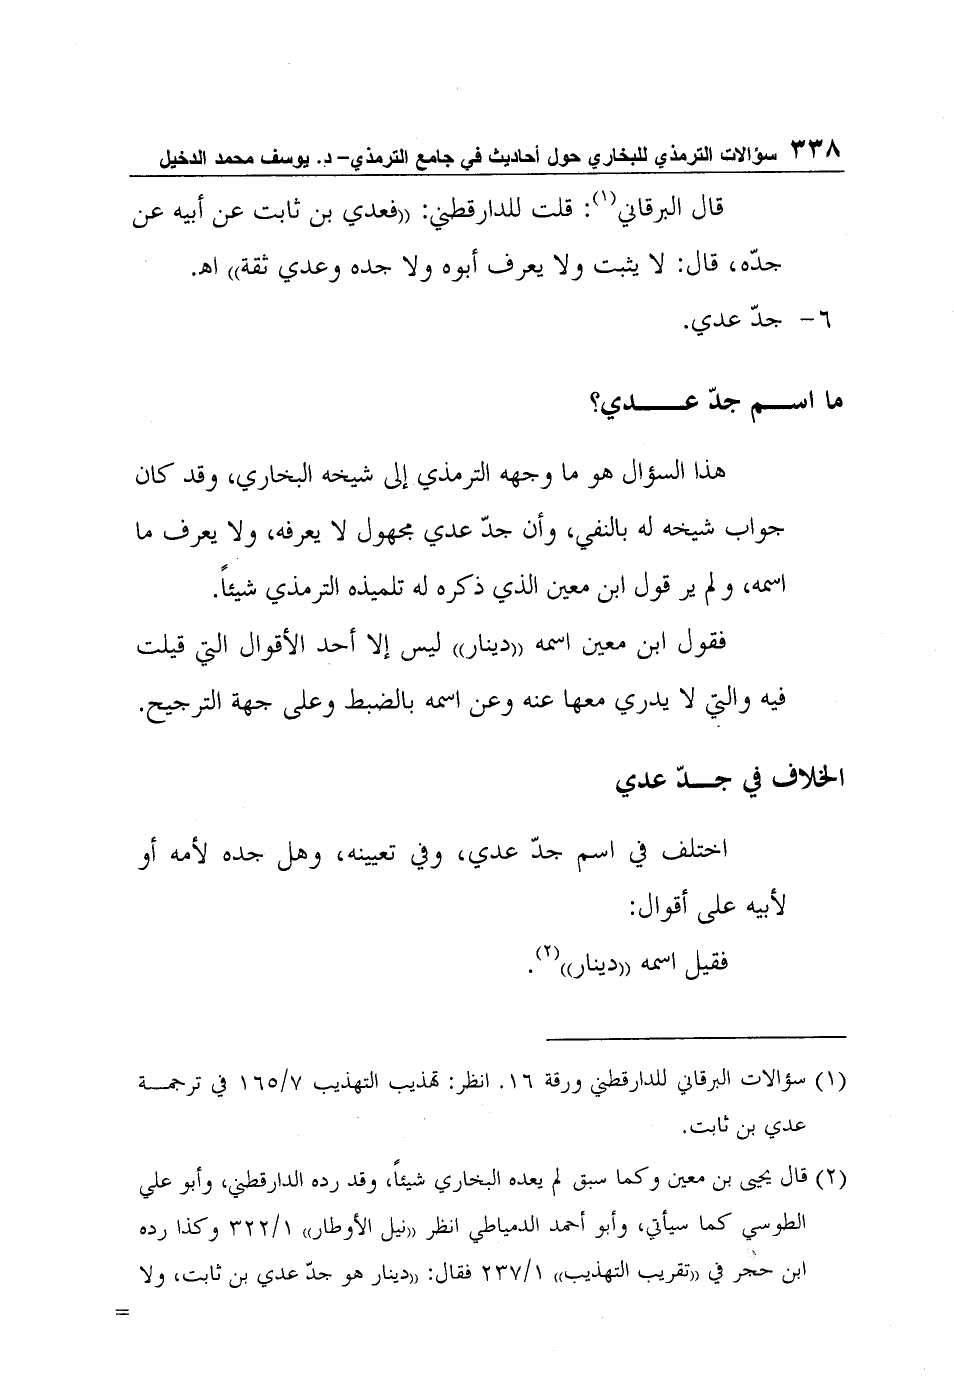 ٣٣٨ سؤالات الترمذي للبخاري حول أحاديث في جامع الترمذي- د. يوسف محمد الدخيل
قال البرقاني(١): قلت للدارقطني: ((فعدي بن ثابت عن أبيه عن
جدّه، قال: لا يثبت ولا يعرف أبوه ولا جده وعدي ثقة)) اهـ.
٦- جدّ عدي.
ما اســم جدّ عـــدي؟
هذا السؤال هو ما وجهه الترمذي إلى شيخه البخاري، وقد كان
جواب شيخه له بالنفي، وأن جدّ عدي مجهول لا يعرفه، ولا يعرف ما
اسمه، و لم ير قول ابن معين الذي ذكره له تلميذه الترمذي شيئاً.
فقول ابن معين اسمه ((دينار)) ليس إلا أحد الأقوال التي قيلت
فيه والتي لا يدري معها عنه وعن اسمه بالضبط وعلى جهة الترجيح.
الخلاف في جــدّ عدي
اختلف في اسم جدّ عدي، وفي تعيينه، وهل جده لأمه أو
لأبيه على أقوال:
فقيل اسمه ((دينار))(٢).
(١) سؤالات البرقاني للدارقطني ورقة ١٦. انظر: تهذيب التهذيب ١٦٥/٧ في ترجمــة
عدي بن ثابت.
(٢) قال يحيى بن معين وكما سبق لم يعده البخاري شيئاً، وقد رده الدارقطني، وأبو علي
الطوسي كما سيأتي، وأبو أحمد الدمياطي انظر ((نيل الأوطار)) ٣٢٢/١ وكذا رده
ابن حجر في ((تقريب التهذيب)) ٢٣٧/١ فقال: ((دينار هو جدّ عدي بن ثابت، ولا
=